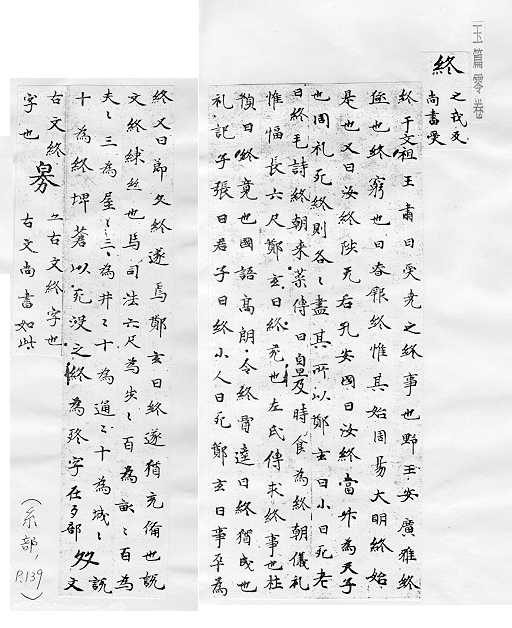 玉篇零卷
終 之戎反
尚書受
終于文祖王肅曰受堯之終事也野王案廣雅終
終窮也曰春報終惟其始周易大明終始
是也又曰汝終陟元后孔安國曰汝終當升為天子
也周礼死終則各〻盡其所以鄭玄曰小曰死老
曰終毛詩終朝来菜傳曰自旦及時食為終朝儀礼
惟幅長六尺鄭玄曰終充也左氏傳求終事也杜
預曰終竟也國語高朗令終賈逵曰終猶成也
礼記子張曰君子曰終小人曰死鄭玄曰事卒為
終又曰節文終遂焉鄭玄曰終遂猶充俻也說
文終絿丝也馬司法六尺為步〻百為畝〻百為
夫〻三為屋〻三為井〻十為通〻十為成〻
十為終埤蒼以死没之終為殁字在歹部 說文
古文終字也
古文終字也
古文尚書如此
(糸部,
P.139)